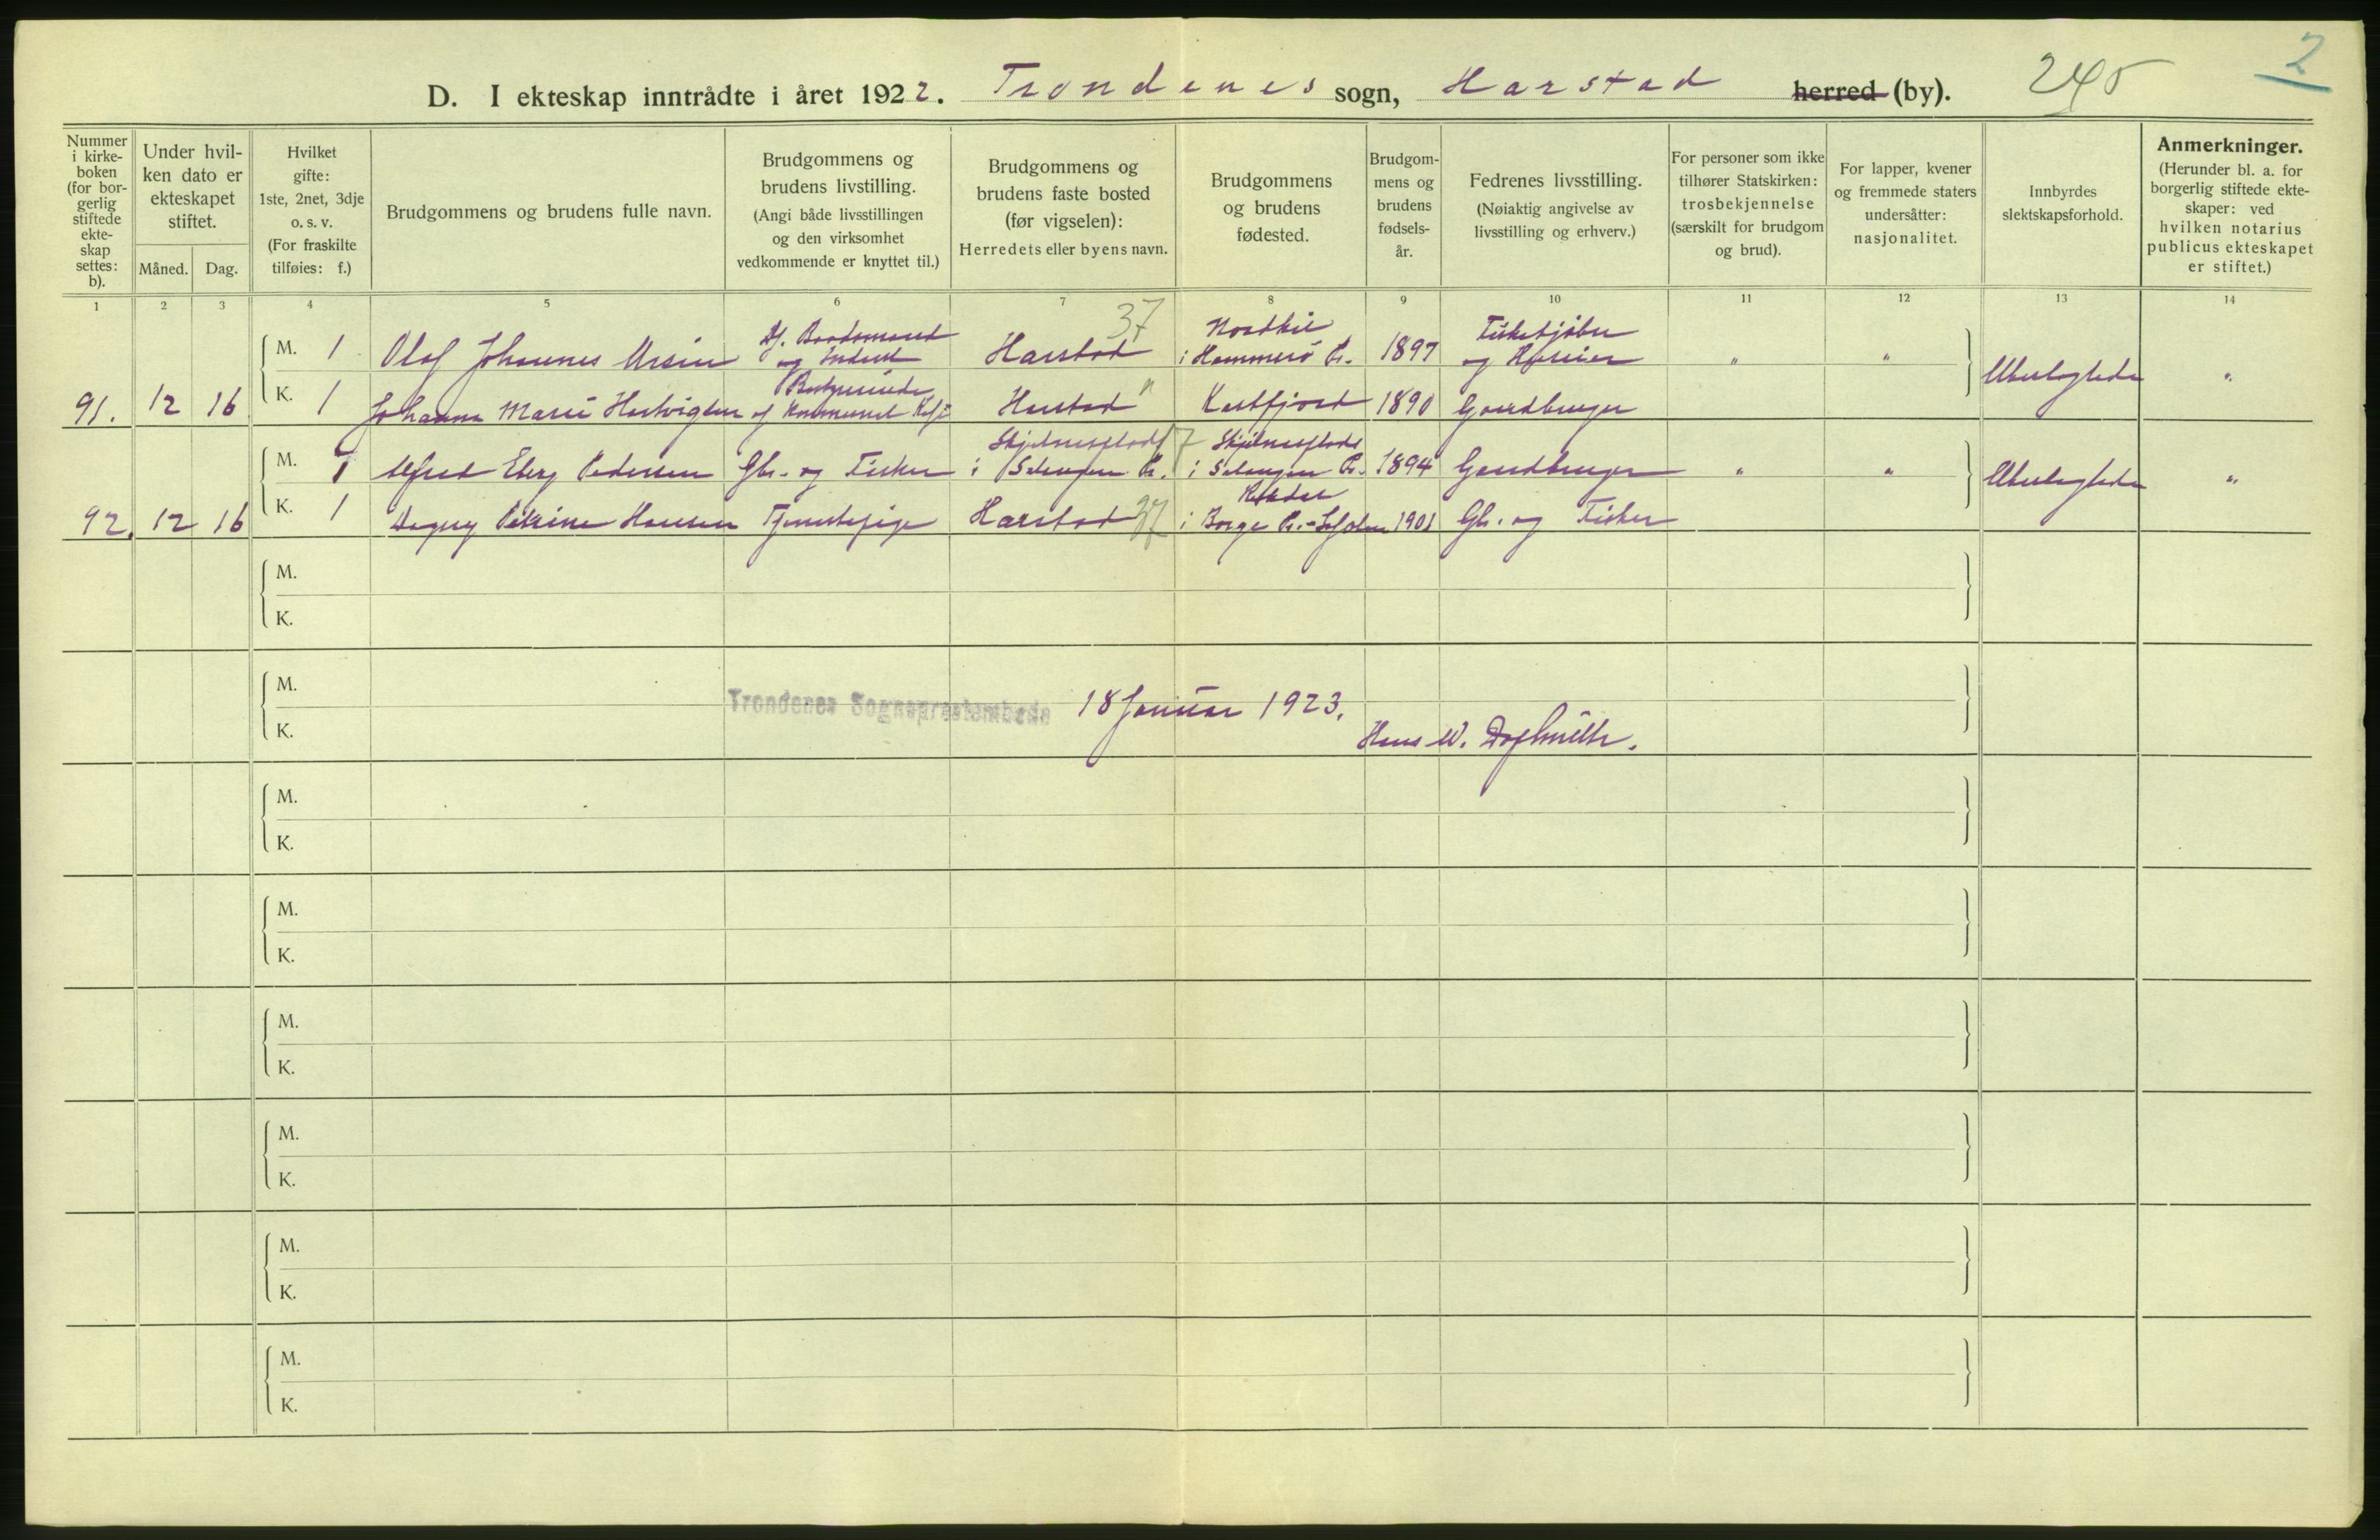 2
245
D. I ekteskap inntrådte i året 1922. Trondenes sogn, Harstad herred (by).
Nummer i kirke- boken (for bor- gerlig stiftede ekte- skap settes: b).
Under hvil- ken dato er ekteskapet stiftet.
Måned. Dag.
Hvilket gifte: 1ste, 2net, 3dje o. s. v. (For fraskilte tilføies: f.)
Brudgommens og brudens fulle navn.
Brudgommens og brudens livstilling. (Angi både livsstillingen og den virksomhet vedkommende er knyttet til.)
Brudgommens og brudens faste bosted (før vigselen): Herredets eller byens navn.
Brudgommens og brudens fødested.
Brudgom- mens og brudens fødsels- år.
Fedrenes livsstilling. (Nøiaktig angivelse av livsstilling og erhverv.)
For personer som ikke tilhører Statskirken: trosbekjennelse (særskilt for brudgom og brud).
For lapper, kvener og fremmede staters undersåtter: nasjonalitet.
Innbyrdes slektskapsforhold.
Anmerkninger. (Herunder bl. a. for borgerlig stiftede ekte- skaper: ved hvilken notarius publicus ekteskapet er stiftet.)
1 2 3 4 5 6 7 8 9 10 11 12 13 14
37
M. 1 Olaf Johannes og Harstad i Hammerø P. 1897 og " "
91. 12 16 K. 1 Johanna Marie Hartvigsen Harstad " Kastfjord 1890 Gaardbruger Ubeslegtede "
M. 1 Alfred Pedersen Gbr. og Fisker i Salangen P. 7 i Salangen P. 1894 Gaardbruger " "
92. 12 16 K. 1 Dagny Petrine Hansen Tjenestepige Harstad 37 i Borge P. - Lofoten 1901 Gbr. og Fisker Ubeslegtede "
M.
K.
M.
Trondenes Sogneprestembede 18 Januar 1923.
K.
Hans W.
M.
K.
M.
K.
M.
K.
M.
K.
M.
K.
M.
K.